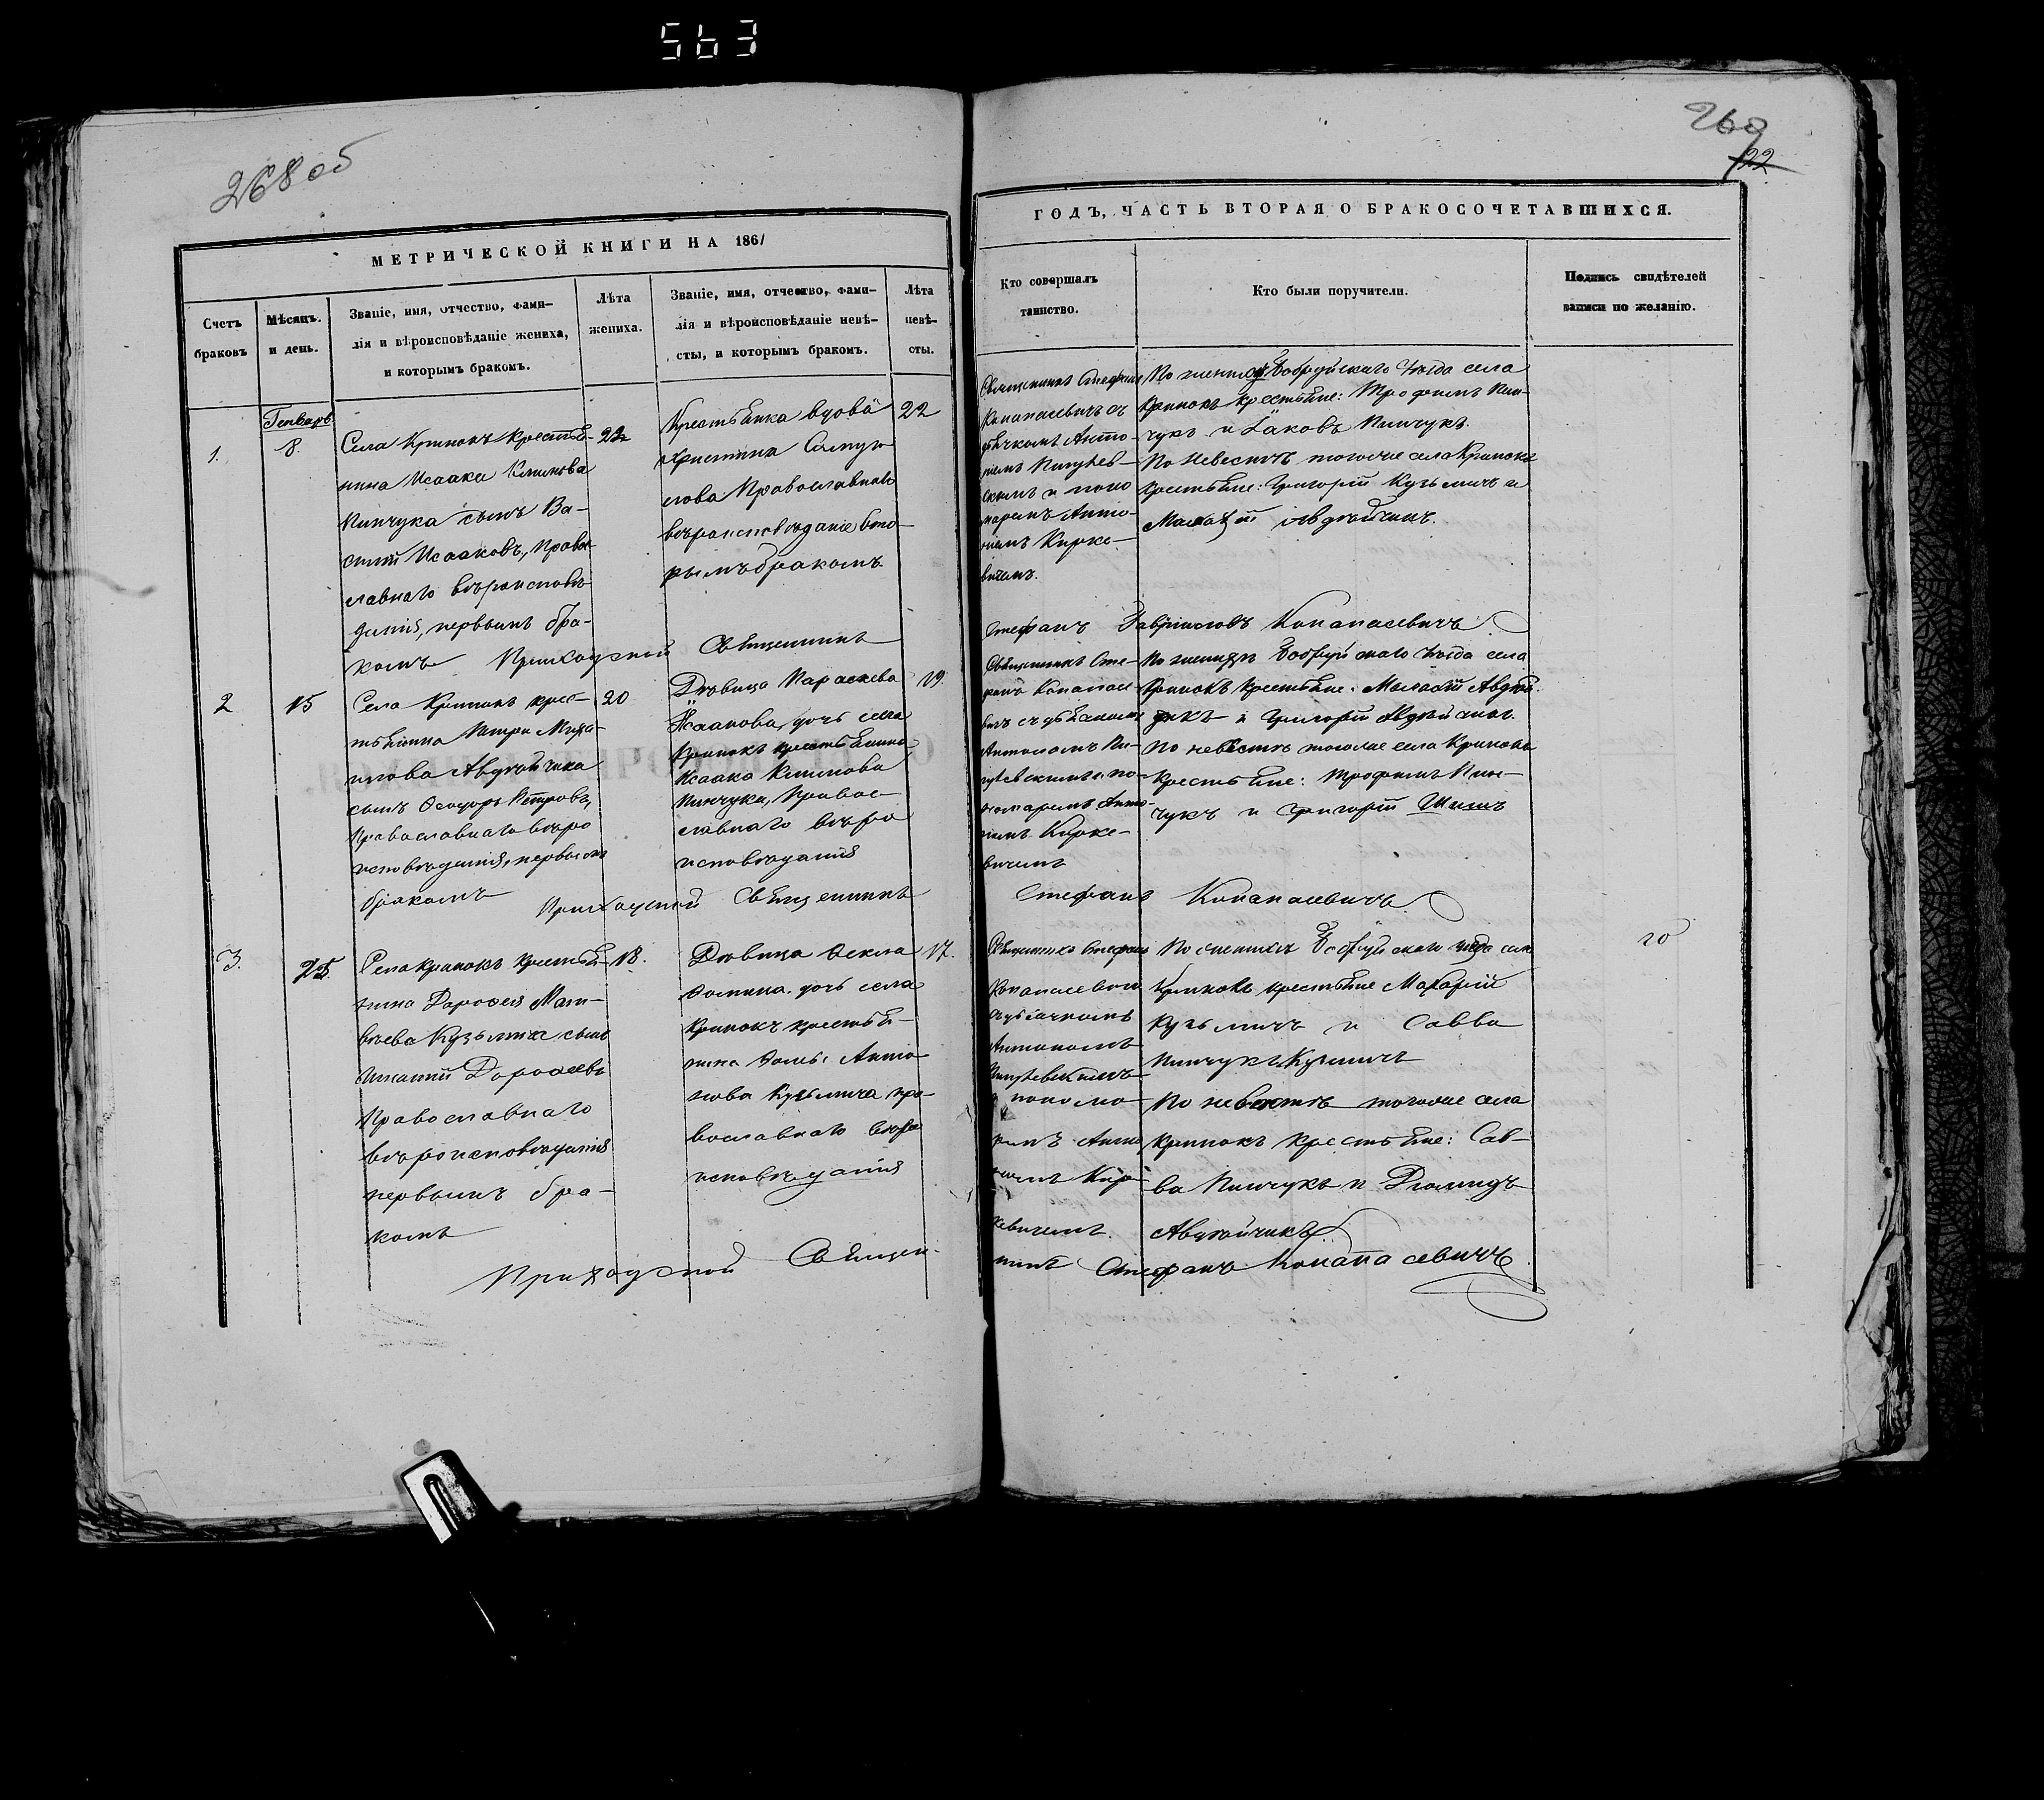 563
268 об
269
122
МЕТРИЧЕСКОЙ КНИГИ НА 1861
ГОДЪ, ЧАСТЬ ВТОРАЯ О БРАКОСОЧЕТАВШИХСЯ.
Счетъ браковъ
Мѣсяцъ. и день.
Званіе, имя, отчество, фами-
лія и вѣроисповѣданіе жениха,
и которымъ бракомъ.
Лѣта
жениха.
Званіе, имя, отчество, фами-
лія и вѣроисповѣданіе невѣ-
сты, и которымъ бракомъ.
Лѣта
невѣ-
сты.
Кто совершалъ
таинство.
Кто были поручители.
Подпись свидѣтелей
записи по желанію.
1.
Генварь
8.
Села Кринокъ крестья-
нина Исаака Климова
Пинчука сынъ Ва-
силій Исааковъ, право-
славнаго вѣроисповѣ-
данія, первымъ бра-
комъ
22
Крестьянка вдова
Христина
слова Православнаго
вѣроисповѣданіе вто-
рымъ бракомъ
22
Священникъ Стефанъ
Конапасевичъ съ
дьячкомъ Анто-
и поно
маремъ Анто-
ніемъ Кирке-
вичемъ.
По женихѣ Бобруйскаго уѣзда села
Кринокъ крестьяне: Трофимъ Пин-
чукъ и Іаковъ Пинчукъ.
По невестѣ тогоже села Кринокъ
крестьяне: Григорій Кузьмичъ и
Авдѣйчикъ.
Приходской Священникъ Стефанъ Гавріиловъ Конапасевичъ
2
15
Села Кринокъ крес-
тьянина Петра Миха-
илова Авдѣйчика
сынъ Ѳеодоръ Петровъ,
Православнаго вѣро
исповѣданія, первымъ
бракомъ
20
Дѣвица Параскева
Исаакова, дочь села
Кринокъ крестьянина
Исаака Климова
Пинчука, Правос-
славнаго вѣро
исповѣданія
19.
Священникъ Сте-
фанъ Конапасе-
вичъ съ дьячкомъ
по-
номаремъ Анто-
ніемъ Кирке-
вичемъ
По женихѣ Бобруйскаго уѣзда села
Кринокъ крестьяне:
и Григорій
По невѣстѣ тогоже села Кринокъ
крестьяне: Трофимъ Пин-
чукъ и Григорій Шишъ
Приходской Священникъ Стефанъ Конапасевичъ
3.
25.
Села Кринокъ крестья-
нина Дороѳея Мат-
вѣева Кузьмича сынъ
Игнатій Дороѳеевъ
Православнаго
вѣроисповѣданія
первымъ бра-
комъ
18.
Дѣвица Ѳекла
Ѳомина дочь села
Кринокъ крестья-
нина Ѳомы Анто-
нова Кузьмича пра-
вославнаго вѣро
исповѣданія
17.
Священникъ Стефанъ
Конапасевичъ
съ дьячкомъ
и понома-
ремъ Анто
ніемъ Кир-
кевичемъ.
По женихѣ Бобруйскаго уѣзда села
Кринокъ крестьяне Макарій
Кузьмичъ и Савва
Пинчукъ
По невѣстѣ тогоже села
Кринокъ крестьяне: Сав-
ва Пинчукъ и Діомидъ
Авдѣйчикъ.
20
Приходской Священ-
никъ Стефанъ Конапасевичъ